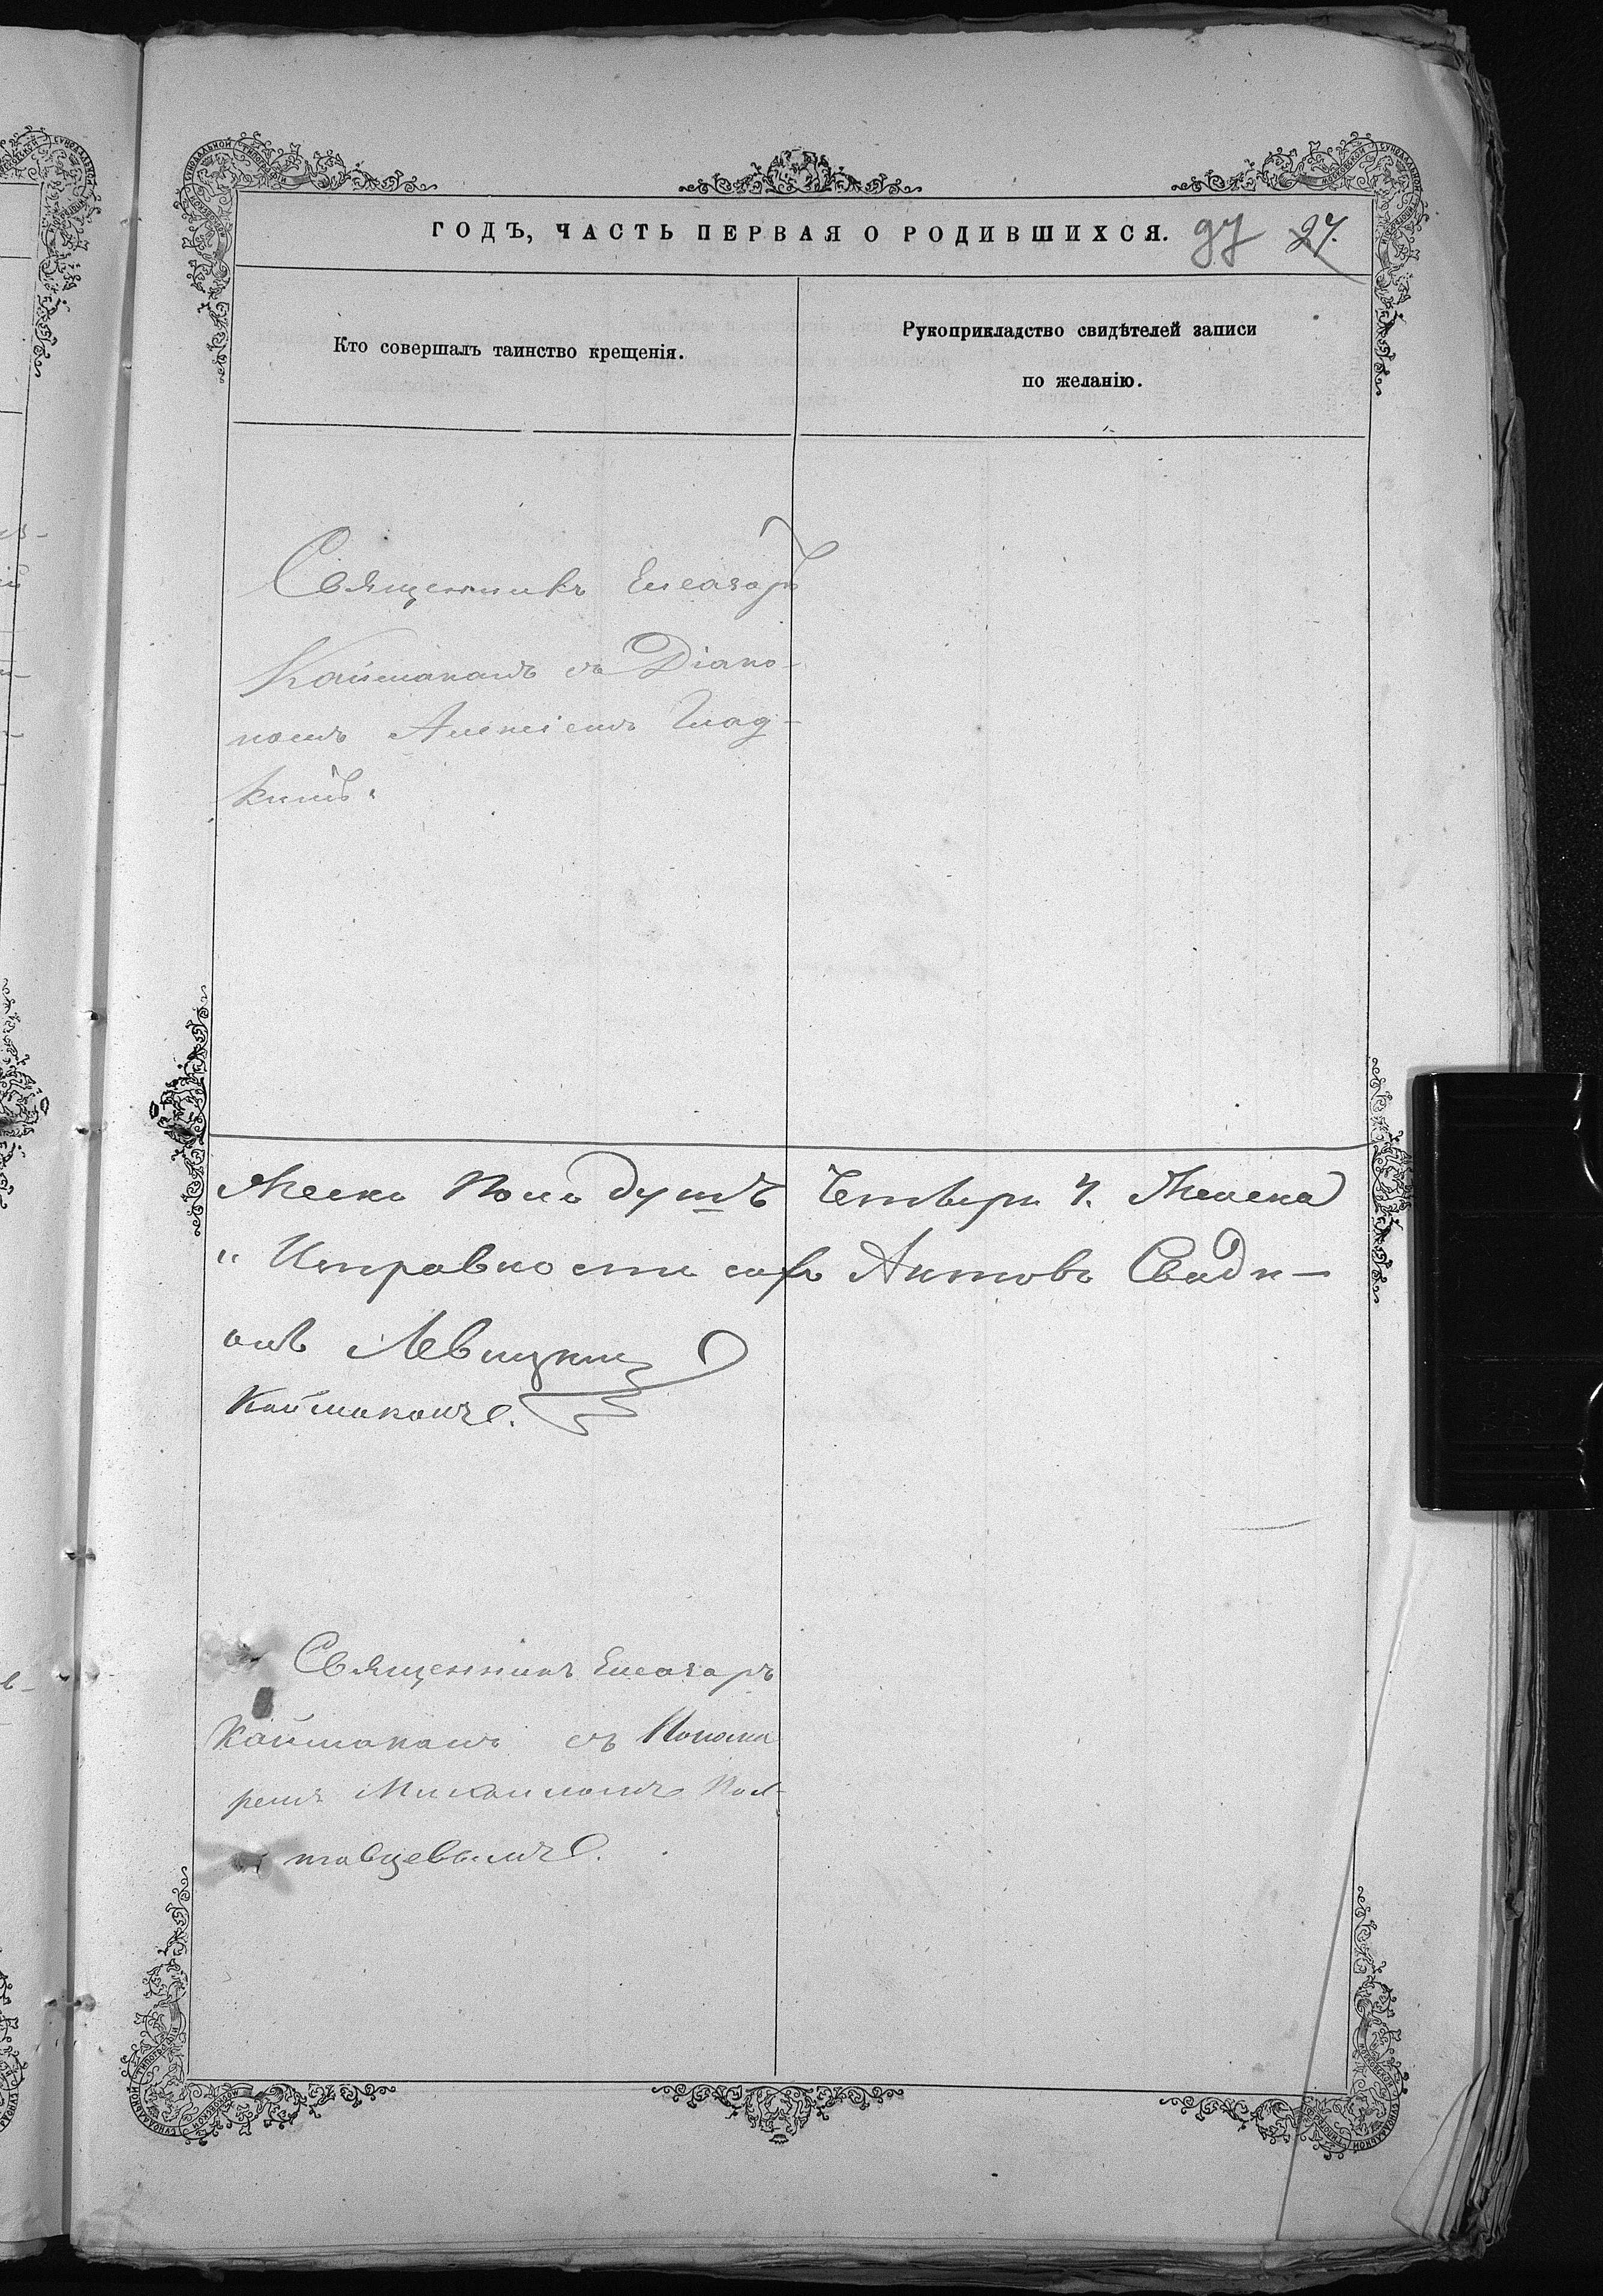 ГОДЪ, ЧАСТЬ ПЕРВАЯ О РОДИВШИХСЯ. 97 27.
Кто совершалъ таинство крещенія.
Рукоприкладство свидѣтелей записи
по желанію.
Священникъ Елеазаръ
Каймаканъ съ Діако-
номъ Алексіемъ Глад-
кимъ.
Женска Пола душъ Четверы 4. Женска
Исправности сихъ Актовъ Свидѣ-
Левицкій
Каймаканъ.
Священникъ Елеазаръ
Каймаканъ съ Понома
ремъ Михаиломъ Пол-
тавцевымъ.